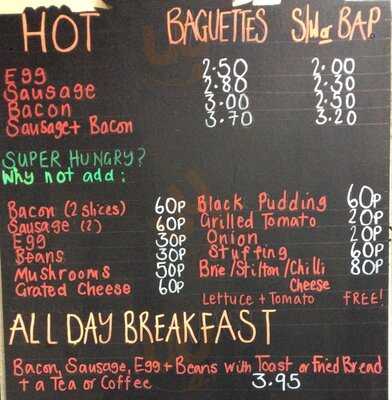 HOT BAGUETTES S/W or BAP
Egg 2.50 2.00
Sausage 2.80 2.30
Bacon 3.00 2.50
Sausage + Bacon 3.70 3.20
SUPER HUNGRY?
Why not add:
Bacon (2 slices) 60p Black Pudding 60p
Sausage (2) 60p Grilled Tomato 20p
Egg 30p Onion 20p
Beans 30p Stuffing 60p
Mushrooms 50p Brie/Stilton/Chilli 80p
Grated Cheese 60p Cheese
Lettuce + Tomato FREE!
ALL DAY BREAKFAST
Bacon, Sausage, Egg + Beans with Toast or Fried Bread
+ a Tea or Coffee 3.95